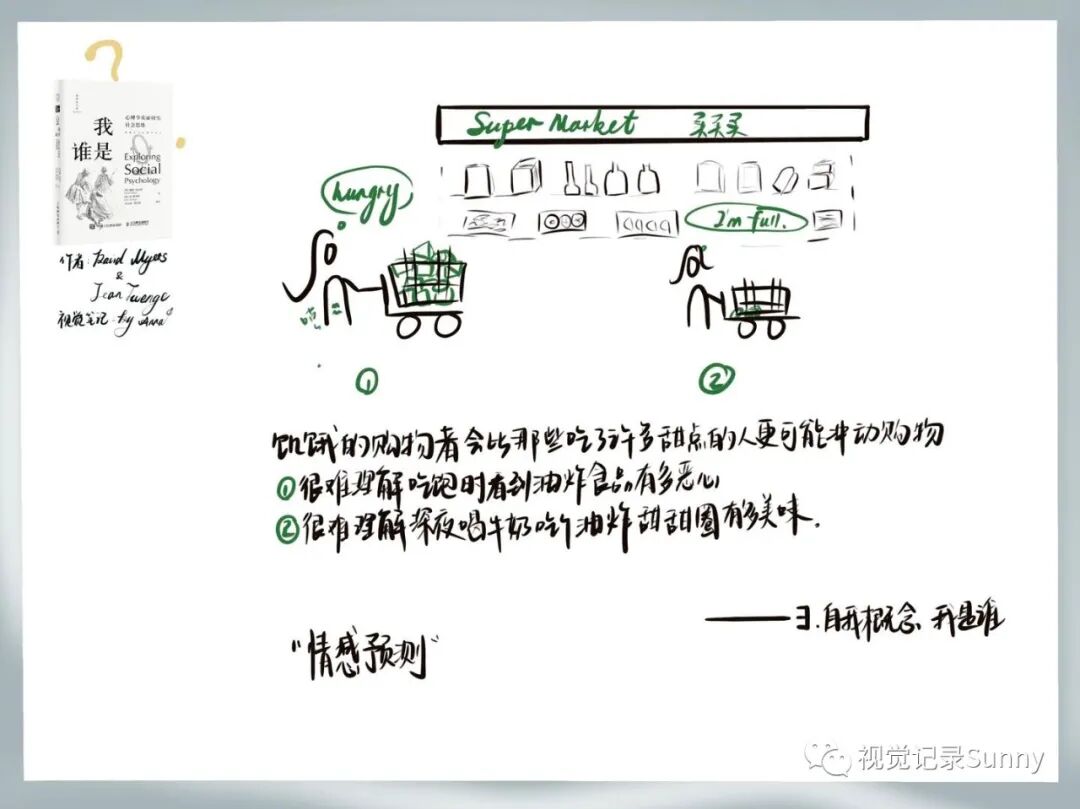 ?
心理学家面对的
社会思维
我
谁是
Exploring
Social
Psychology
作者: David Myers
&
Jean Twenge
视觉笔记 by Anna
Super Market 买买买
hungry
I'm full.
①
②
饥饿的购物者会比那些吃了许多甜点的人更可能冲动购物
①很难理解吃饱时看到油炸食品有多恶心
②很难理解深夜喝牛奶吃个油炸甜甜圈有多美味.
"情感预测"
3.自我概念、我是谁
视觉记录Sunny